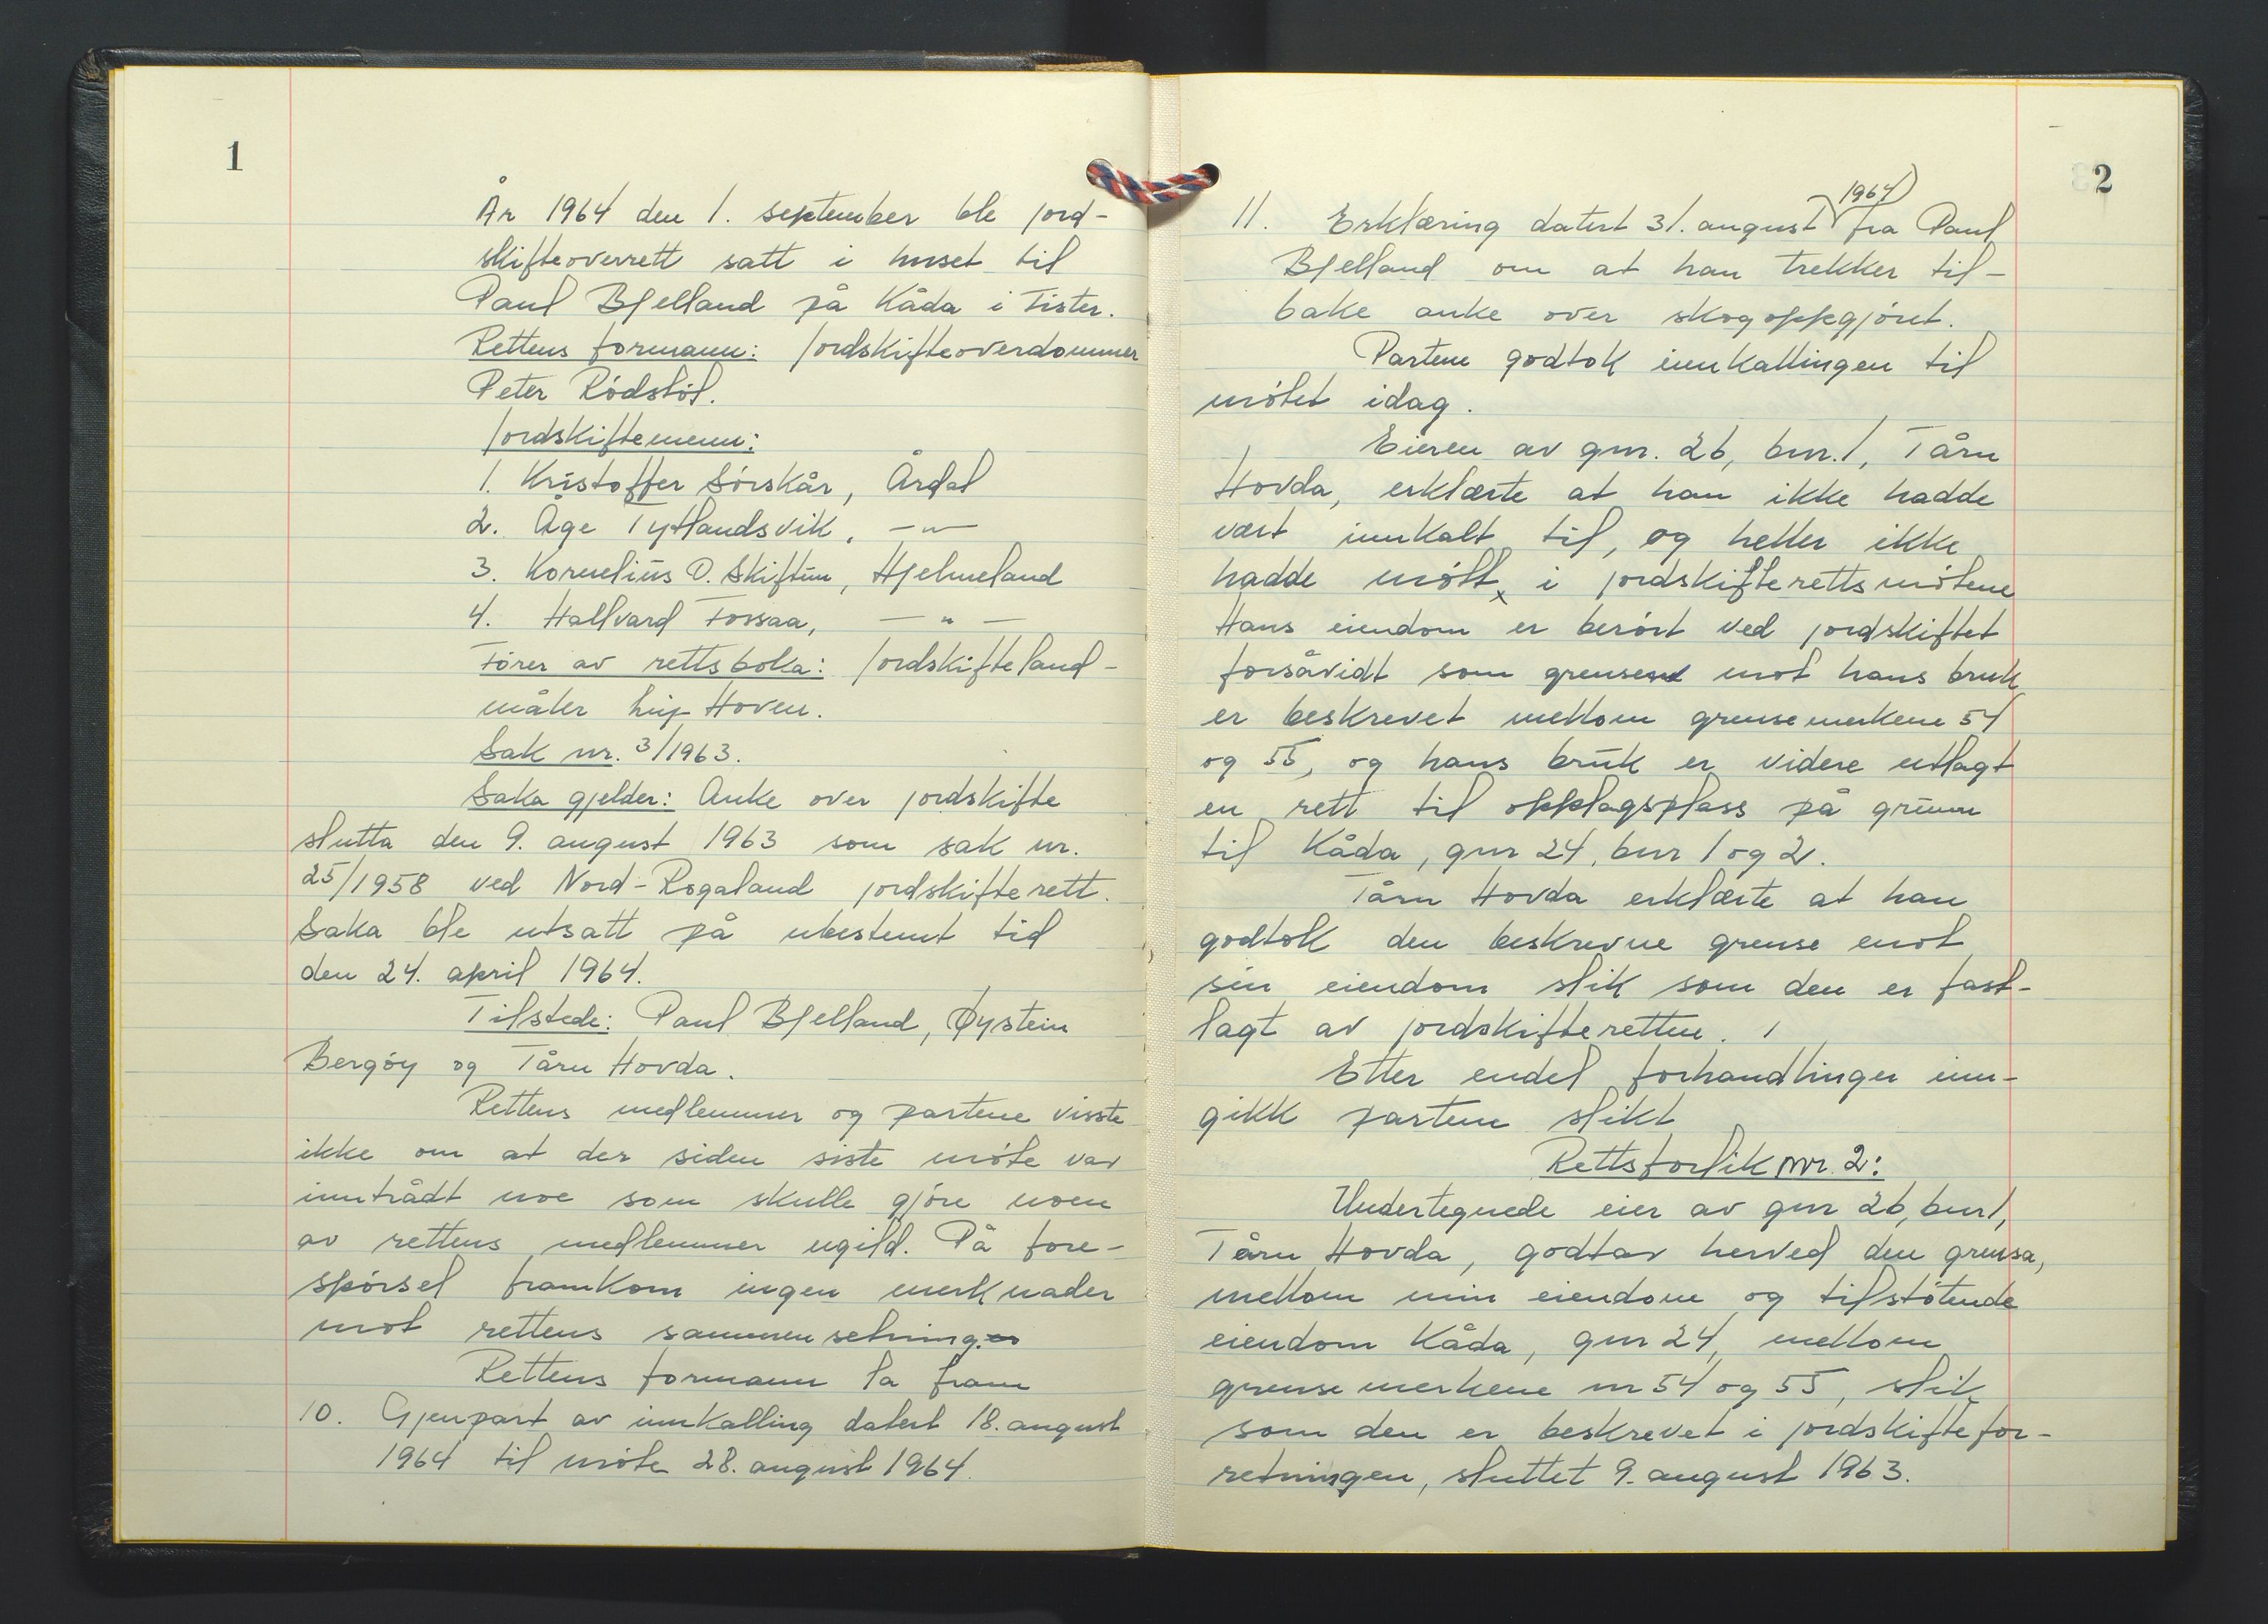 1
År 1964 den 1. september ble jord-
skifteoverrett satt i huset til
Paul Bjelland på Kåda i Fister.
Rettens formann: Jordskifteoverdommer
Peter Rødstøl.
Jordskiftemenn:
1. Kristoffer Sørskår, Årdal
2. Åge Tytlandsvik, —"—
3. Kornelius O. Skiftun, Hjelmeland
4. Hallvard Fossaa, — " —
Fører av rettsboka: Jordskifteland-
måler Hoven.
Sak nr. 3/1963.
Saka gjelder: Anke over jordskifte
slutta den 9. august 1963 som sak nr.
25/1958 ved Nord-Rogaland jordskifterett.
Saka ble utsatt på ubestemt tid
den 24. april 1964.
Tilstede: Paul Bjelland, Øystein
Bergøy og Tårn Hovda.
Rettens medlemmer og partene visste
ikke om at der siden siste møte var
inntrådt noe som skulle gjøre noen
av rettens medlemmer ugild. På fore-
spørsel framkom ingen merknader
mot rettens sammensetning.
Rettens formann la fram
10. Gjenpart av innkalling datert 18. august
1964 til møte 28. august 1964.
2
11. Erklæring datert 31. august 1964 fra Paul
Bjelland om at han trekker til-
bake anke over skogoppgjøret.
Partene godtok innkallingen til
møtet idag.
Eieren av gnr. 26, bnr. 1, Tårn
Hovda, erklærte at han ikke hadde
vært innkalt til, og heller ikke
hadde møtt, i jordskifterettsmøtene
Hans eiendom er berørt ved jordskiftet
forsåvidt som grensene mot hans bruk
er beskrevet mellom grensemerkene 54
og 55, og hans bruk er videre utlagt
en rett til opplagsplass på grunn
til Kåda, gnr 24, bnr 1 og 2.
Tårn Hovda erklærte at han
godtok den beskrevne grense mot
sin eiendom slik som den er fast-
lagt av jordskifteretten.
Etter endel forhandlinger inn-
gikk partene slikt
Rettsforlik nr. 2:
Undertegnede eier av gnr 26, bnr 1,
Tårn Hovda, godtar herved den grensa,
mellom min eiendom og tilstøtende
eiendom Kåda, gnr 24, mellom
grensemerkene nr 54 og 55, slik
som den er beskrevet i jordskiftefor-
retningen, sluttet 9. august 1963.